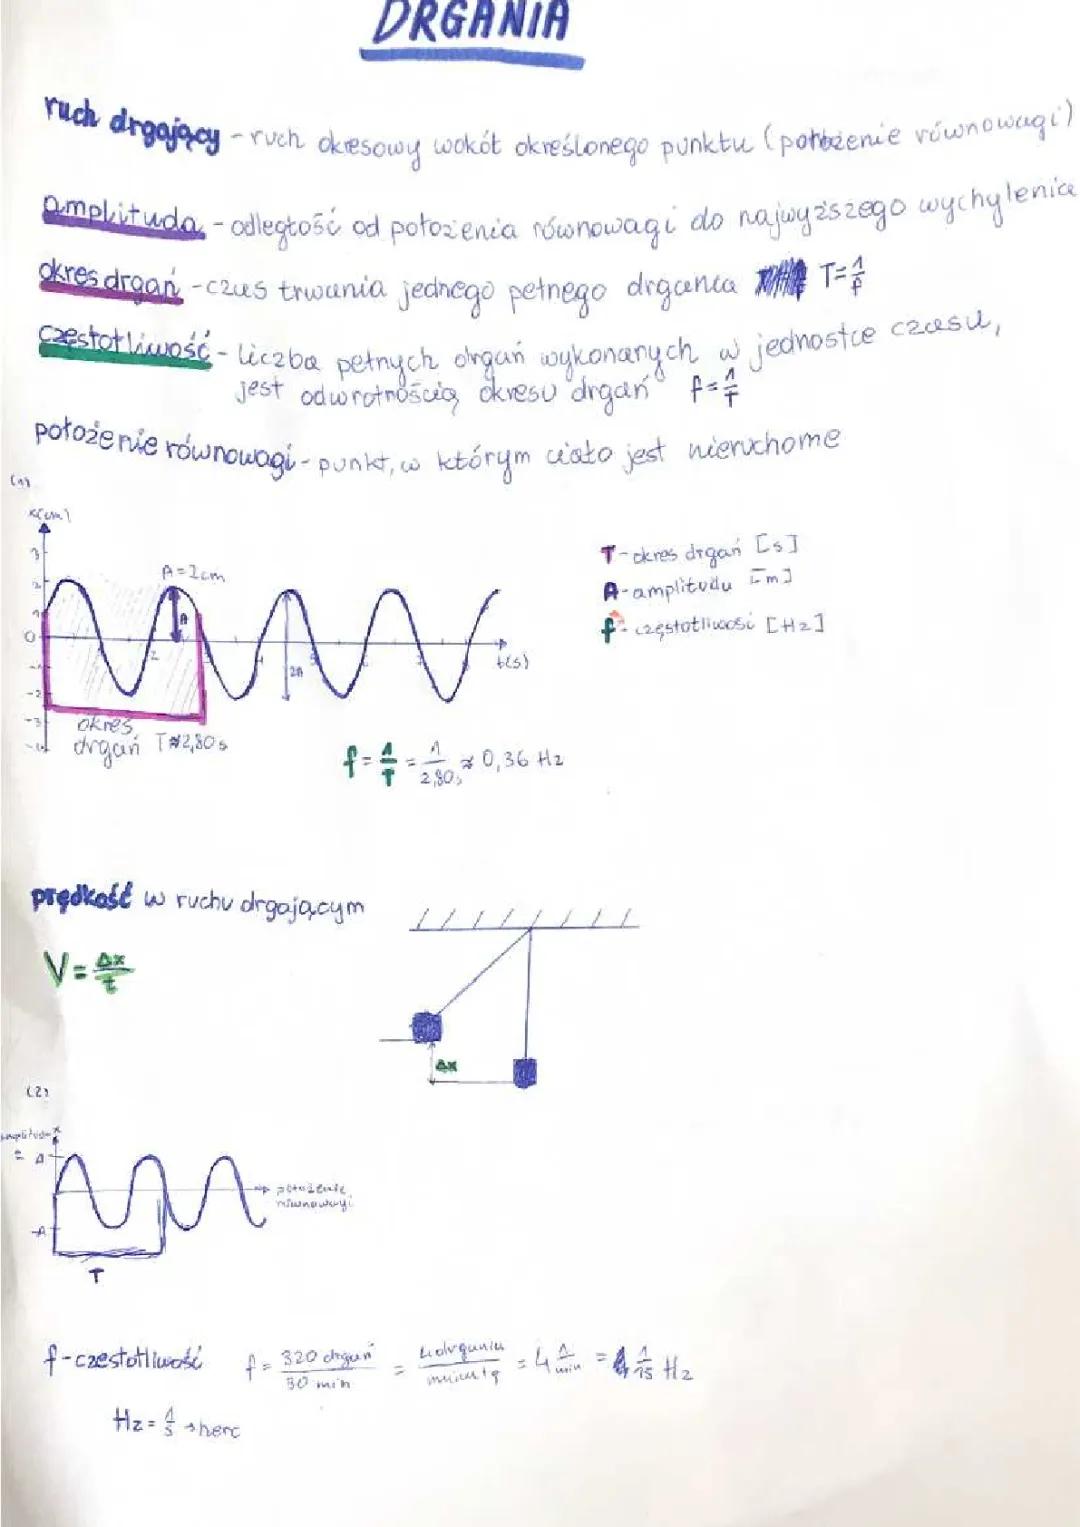 DRGANIA
ruch drgający - ruch okresowy wokół określonego punktu (położenie równowagi)
amplituda - odległość od położenia równowagi do najwyższego wychylenia
okres drgań - czas trwania jednego pełnego drgania T=1/f
częstotliwość - liczba pełnych drgań wykonanych w jednostce czasu,
jest odwrotnością okresu drgań f=1/T
położenie równowagi - punkt, w którym ciało jest nieruchome
(1)
x(cm)
3
2
1
0
-1
-2
-3
-4
A=2cm
A
2A
2
t(s)
okres
drgań T≈2,80s
T - okres drgań [s]
A - amplituda [m]
f - częstotliwość [Hz]
f=1/T=1/2,80s≈0,36 Hz
prędkość w ruchu drgającym
V=Δx/t
Δx
(2)
amplituda x
= A
-A
położenie
równowagi
T
f-czestotliwość f = 320 drgań/30 min = 4 drgania/minutę = 4 1/min = 1/15 Hz
Hz = 1/s → herc